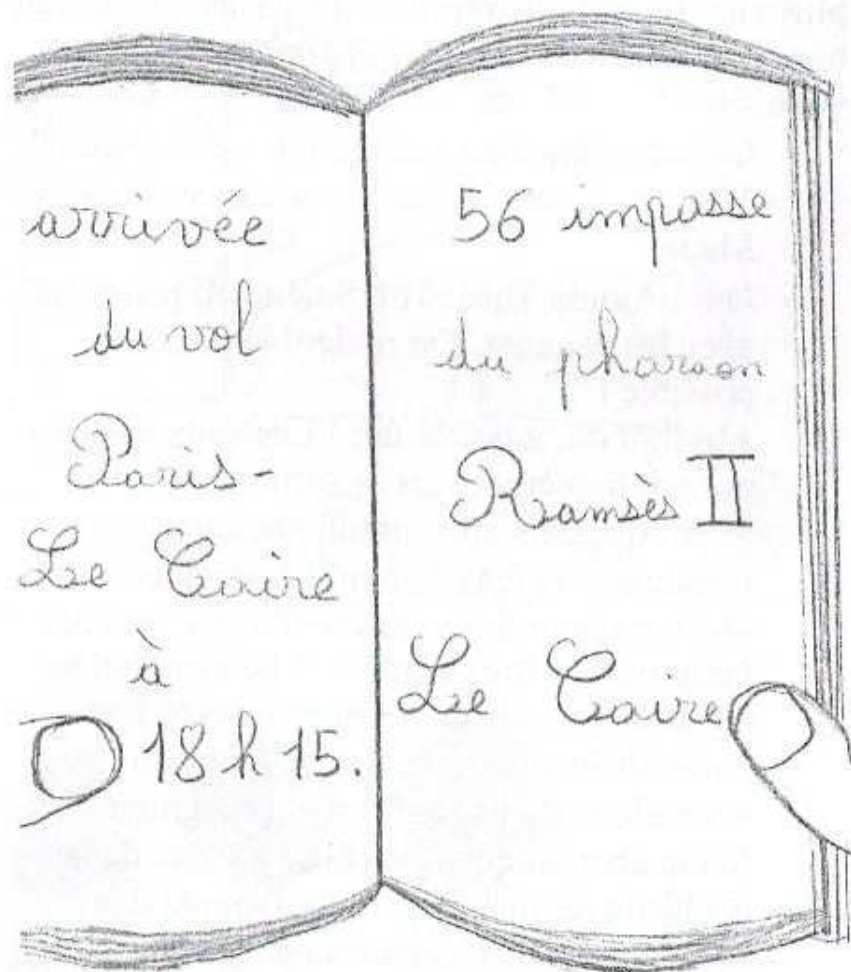 arrivée
du vol
Paris-
Le Caire
à
18 h 15.
56 impasse
du pharaon
Ramsès II
Le Caire